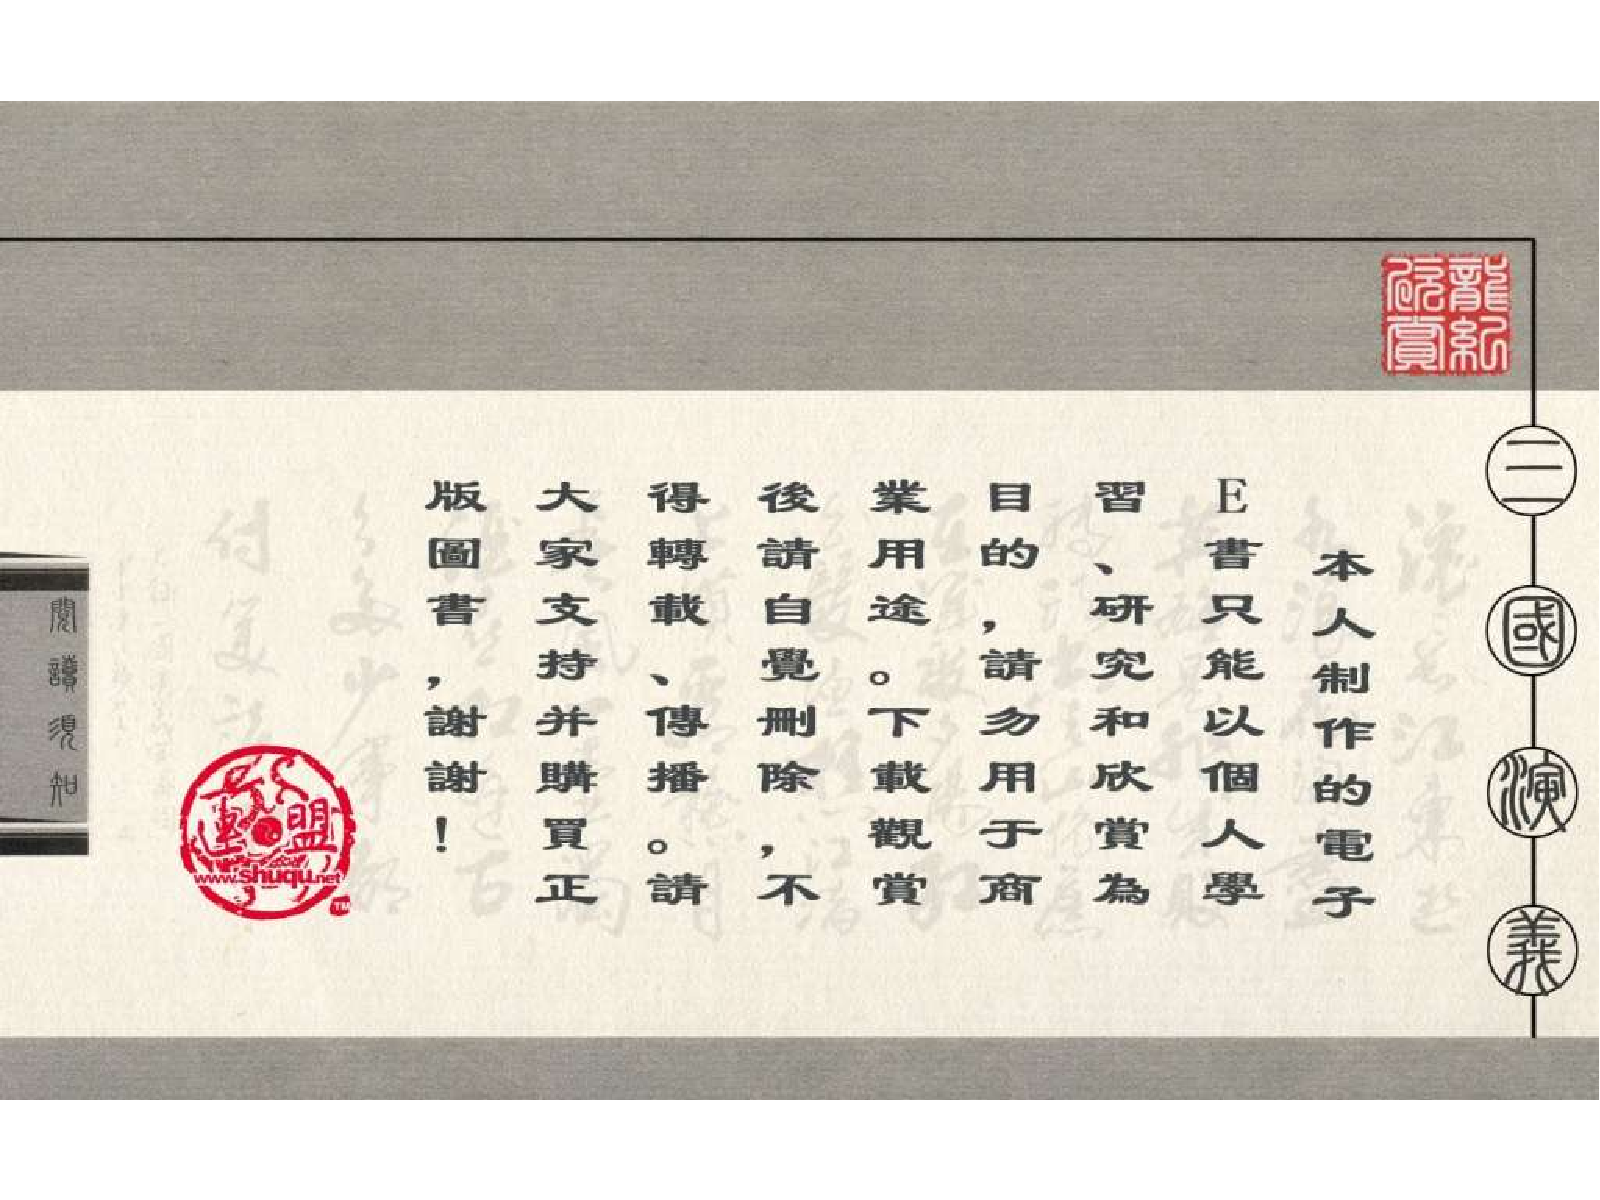 三國演義
龍紀欣賞
本人制作的電子
E書只能以個人學
習、研究和欣賞為
目的，請勿用于商
業用途。下載觀賞
後請自覺刪除，不
得轉載、傳播。請
大家支持并購買正
版圖書，謝謝！
連盟
www.shuqu.net
TM
閱讀須知